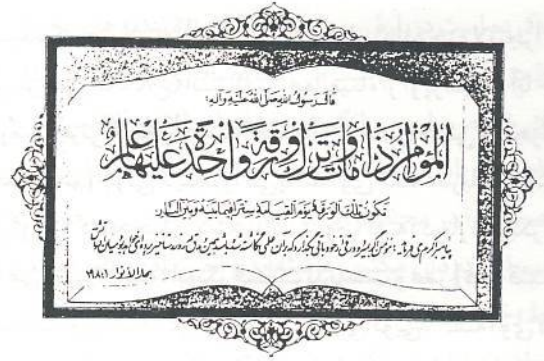 قالَ رَسُولُ اللهِ صَلَّى اللهُ عَلَيْهِ وَآلِهِ:
المُؤمِنُ إذا ماتَ وَتَرَكَ وَرَقَةً واحِدَةً عَلَيْها عِلمٌ
تَكُونُ تِلْكَ الوَرَقَةُ يَوْمَ القِيامَةِ سِتْراً فِيما بَيْنَهُ وَبَيْنَ النّار.
پیامبر اکرم میفرماید: مؤمن اگر بمیرد و ورقی از خود باقی گذارد که بر آن علمی نگاشته شده باشد همین ورق روز رستاخیز پرده‌ای میان او و آتش
بحار الانوار ١٩٨:١